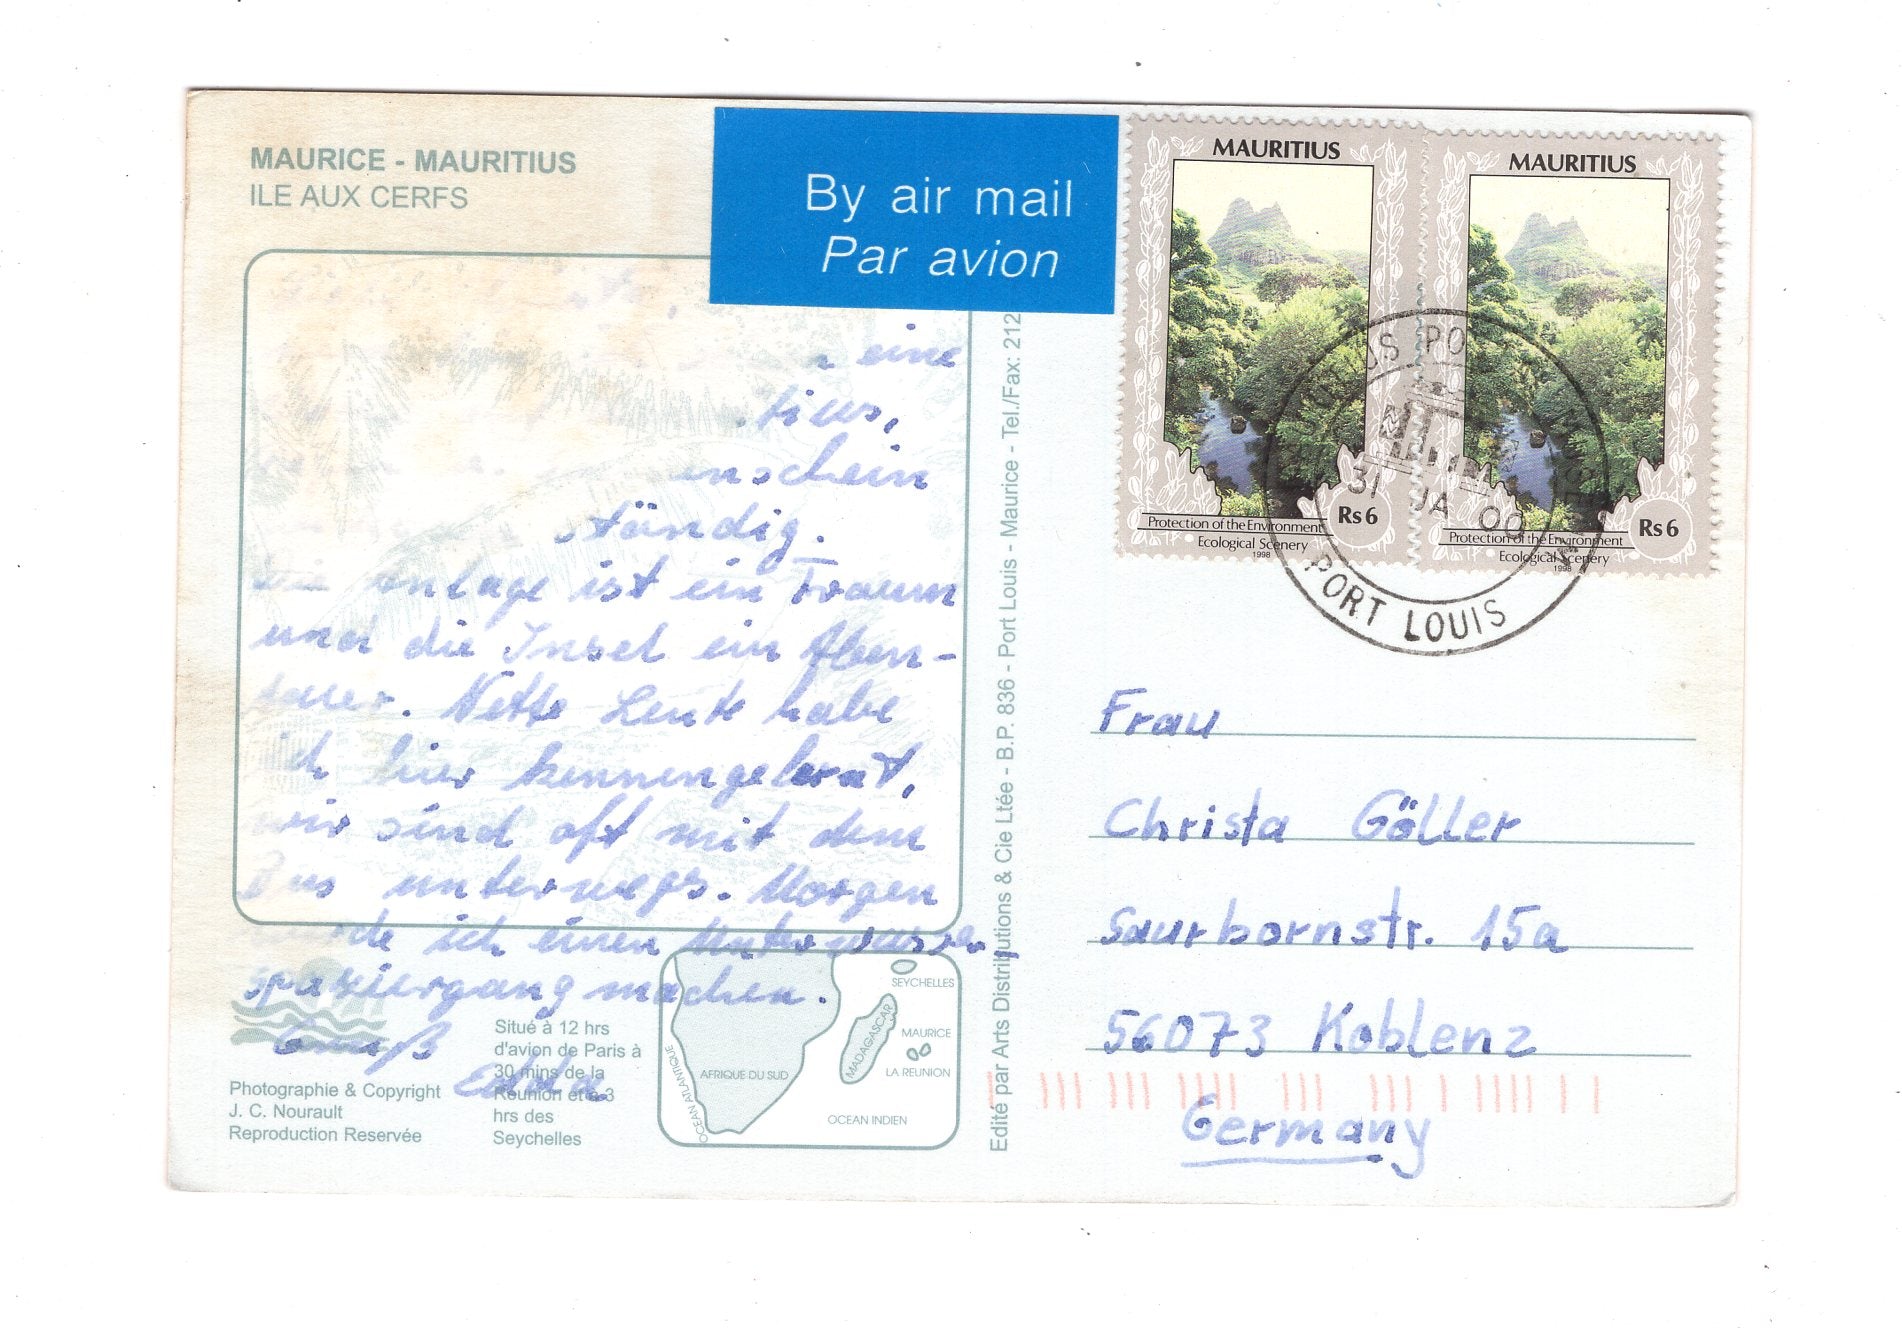 MAURICE - MAURITIUS
ILE AUX CERFS
By air mail
Par avion
MAURITIUS
Protection of the Environment
Ecological Scenery
1998
Rs 6
MAURITIUS
Protection of the Environment
Ecological Scenery
1998
Rs 6
31 JA 00
PORT LOUIS
eine
tius,
nschein
ständig.
anlage ist ein Traum
und die Insel ein Aben-
teuer. Nette Leute habe
ich hier kennengelernt,
wir sind oft mit dem
Bus unterwegs. Morgen
ich einen Unterwasser-
spaziergang machen.
Gruß
Edda
Edité par Arts Distributions & Cie Ltée - B.P. 836 - Port Louis - Maurice - Tel./Fax: 212
Frau
Christa Göller
Saurbornstr. 15a
56073 Koblenz
Germany
Photographie & Copyright
J. C. Nourault
Reproduction Reservée
Situé à 12 hrs
d'avion de Paris à
30 mins de la
Réunion et à 3
hrs des
Seychelles
SEYCHELLES
MADAGASCAR
MAURICE
LA REUNION
AFRIQUE DU SUD
OCEAN ATLANTIQUE
OCEAN INDIEN